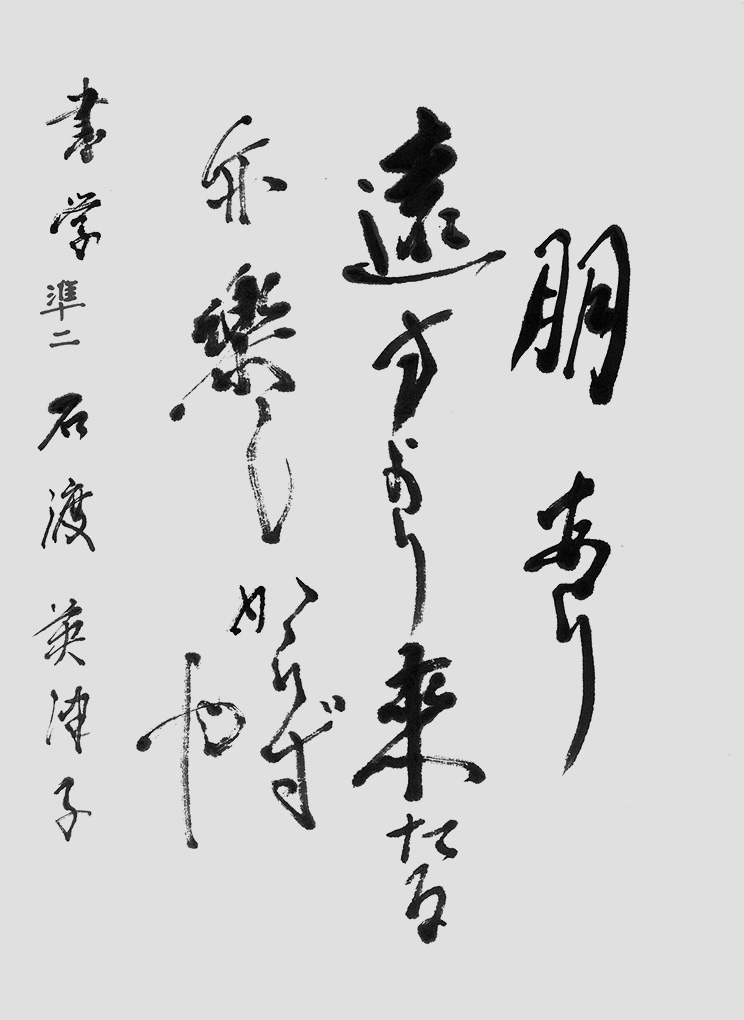 朋あり
遠方より來たる
亦樂しからずや
書学 準二 石渡 英津子